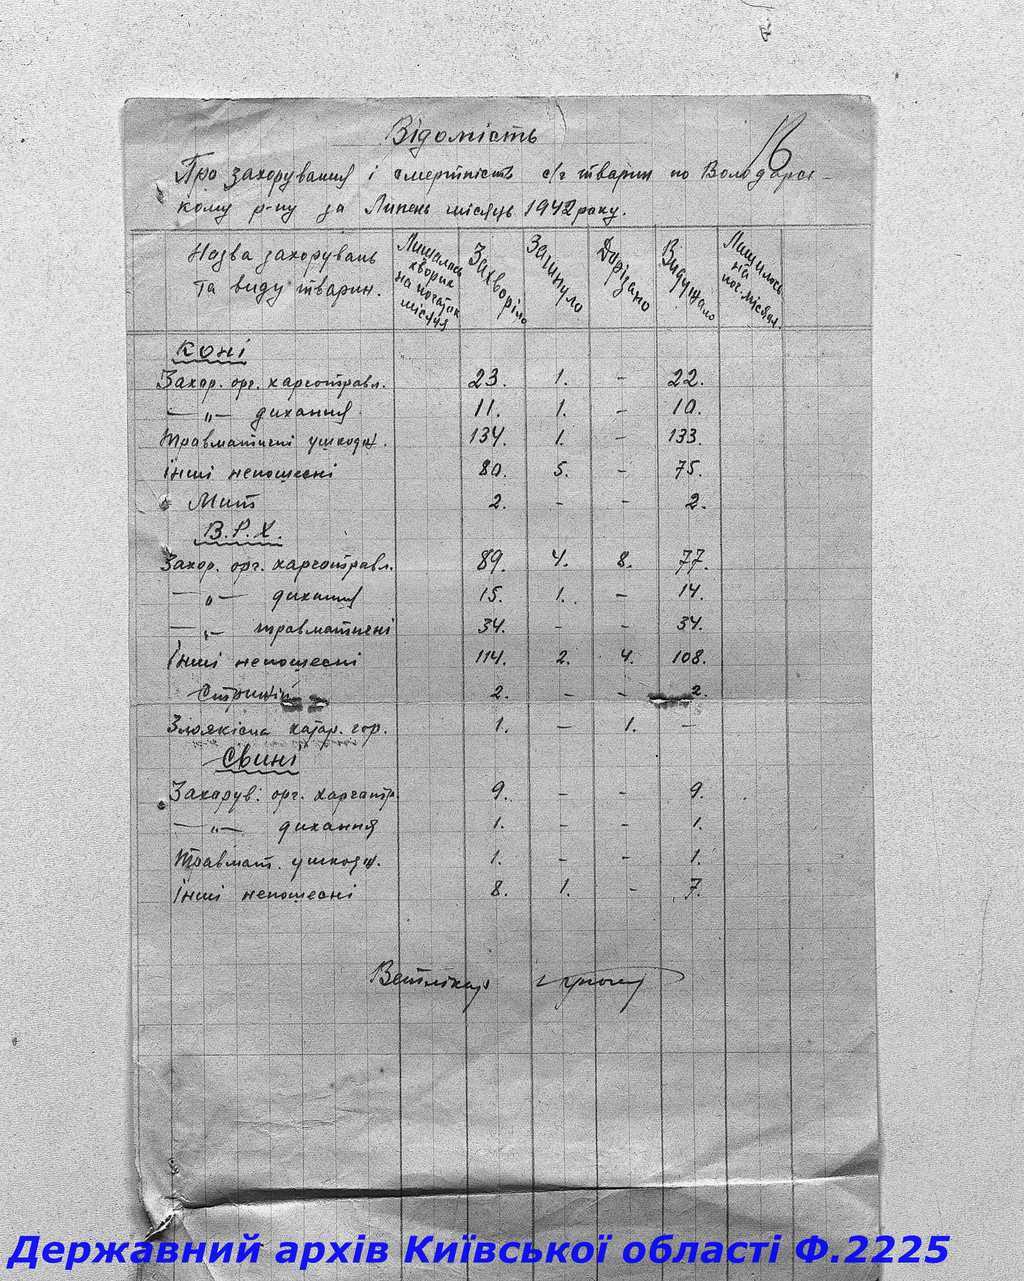 16
Відомість
Про захорування і смертність с/г тварин по Володарсь-
кому р-ну за Липень місяць 1942 року.
Назва захорувань та виду тварин. Лишилось хворих на початок місяця Захворіло Загинуло Дорізано Видужало Лишилось на поч. місяця.
Коні
Захор. орг. харчотравл. 23. 1. - 22.
— „ — дихання 11. 1. - 10.
Травматичні ушкодж. 134. 1. - 133.
Інші непошесні 80. 5. - 75.
Мит 2. - - 2.
В.Р.Х.
Захор. орг. харчотравл. 89. 4. 8. 77.
— „ — дихання 15. 1. - 14.
— „ — травматичні 34. - - 34.
Інші непошесні 114. 2. 4. 108.
2. - - 2.
Злоякісна катар. гор. 1. - 1. -
Свині
Захорув. орг. харчотр. 9. - - 9.
— „ — дихання 1. - - 1.
Травмат. ушкодж. 1. - - 1.
Інші непошесні 8. 1. - 7.
Ветлікар
Державний архів Київської області Ф.2225